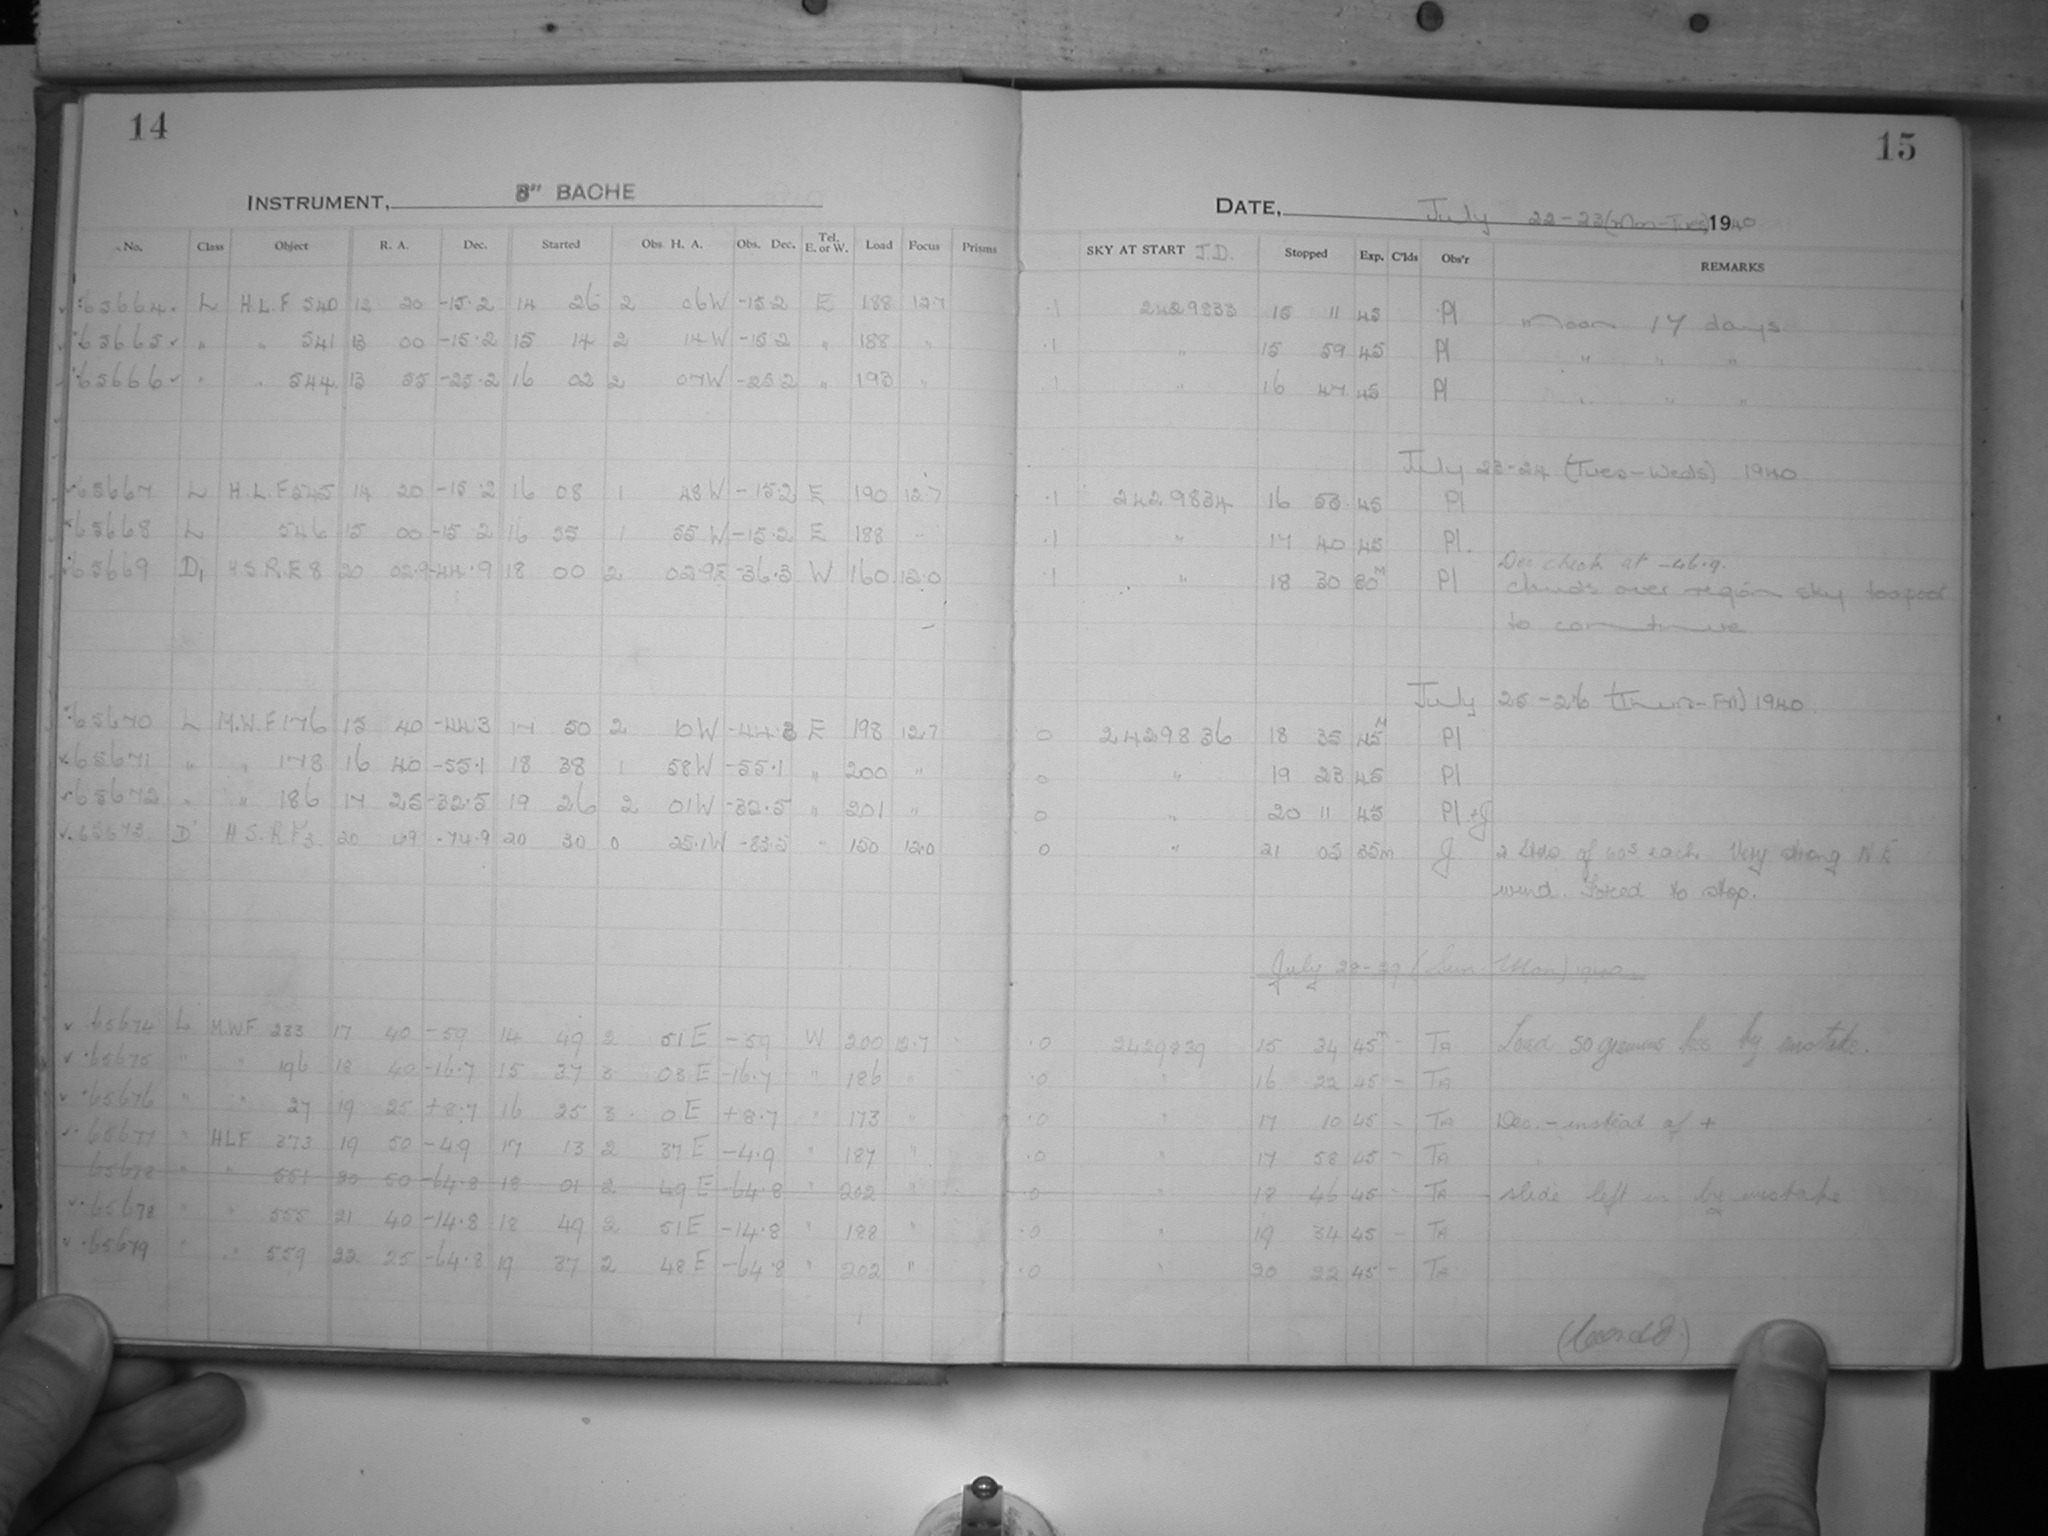 14
15
INSTRUMENT, 8" BACHE
DATE, July 22-23 (Mon-Tues) 1940
No. Class Object R. A. Dec. Started Obs. H. A. Obs. Dec. Tel. E. or W. Load Focus Prisms SKY AT START J.D. Stopped Exp. C'lds Obs'r REMARKS
65664 L H.L.F 540 13 20 -15.2 14 26 2 06W -15.2 E 188 12.7 .1 2429833 15 11 45 Pl Moon 17 days
65665 " " 541 13 00 -15.2 15 14 2 14W -15.2 " 188 " .1 " 15 59 45 Pl " " "
65666 " " 544 13 55 -25.2 16 02 2 07W -25.2 " 193 " .1 " 16 47 45 Pl " " "
July 23-24 (Tues-Weds) 1940
65667 L H.L.F 545 14 20 -15.2 16 08 1 48W -15.2 E 190 12.7 .1 2429834 16 53 45 Pl
65668 L 546 15 00 -15.2 16 55 1 55W -15.2 E 188 " .1 " 17 40 45 Pl.
65669 D1 H.S.R.E 8 20 02.9 -44.9 18 00 2 02.9E -36.3 W 160 12.0 .1 " 18 30 30M Pl Dec check at -46.9.
clouds over region sky too poor
to continue
July 25-26 (Thurs-Fri) 1940
65670 L M.W.F 176 15 40 -44.3 17 50 2 10W -44.3 E 198 12.7 0 2429836 18 35 45M Pl
65671 " " 178 16 40 -55.1 18 38 1 58W -55.1 " 200 " 0 " 19 23 45 Pl
65672 " " 186 17 25 -32.5 19 26 2 01W -32.5 " 201 " 0 " 20 11 45 Pl + J
65673 D' H.S.R.F3 20 49 -74.9 20 30 0 25.1W -83.5 " 150 12.0 0 " 21 05 35m J 2 of 60s each Very strong N E
wind. Forced to stop.
July 28-29 (Sun-Mon) 1940
65674 L M.W.F 233 17 40 -59 14 49 2 51E -59 W 200 12.7 .0 2429839 15 34 45m - TA Load 50 gramms less by mistake.
65675 " " 196 18 40 -16.7 15 37 3 03E -16.7 " 186 " .0 " 16 22 45 - TA
65676 " " 27 19 25 +8.7 16 25 3 0E +8.7 " 173 " .0 " 17 10 45 - TA Dec. - instead of +
65677 " HLF 373 19 50 -4.9 17 13 2 37E -4.9 " 187 " .0 " 17 58 45 - TA
65678 " " 551 20 50 -64.8 18 01 2 49E -64.8 " 202 " .0 " 18 46 45 - TA slide left in by mistake
65678 " " 555 21 40 -14.8 18 49 2 51E -14.8 " 188 " .0 " 19 34 45 - TA
65679 " " 559 22 25 -64.8 19 37 2 48E -64.8 " 202 " .0 " 20 22 45 - TA